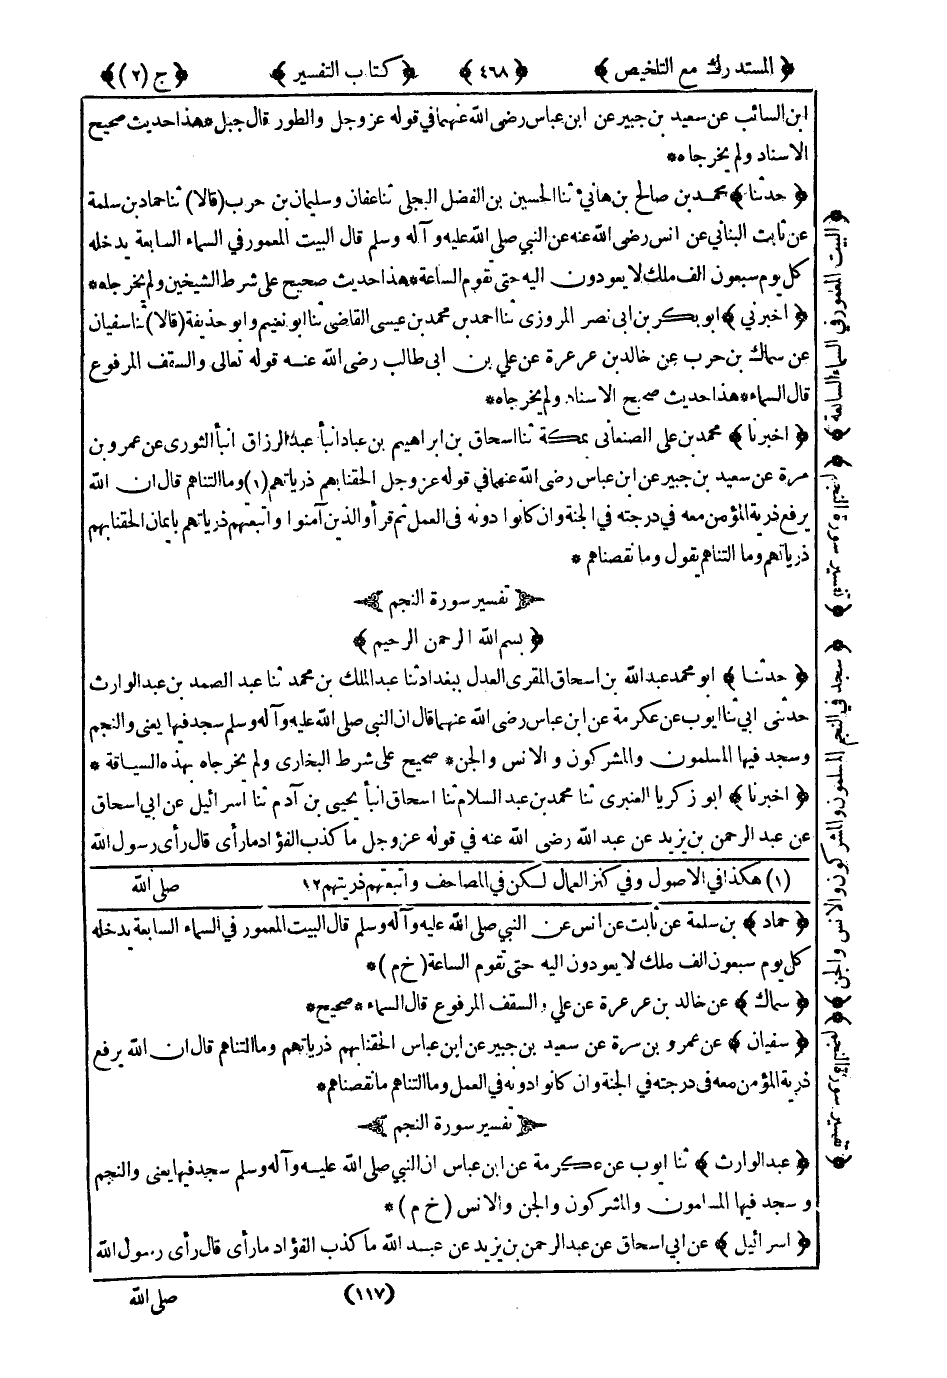 ﴿ المستدرك مع التلخيص ﴾ ﴿ ٤٦٨ ﴾ ﴿ كتاب التفسير ﴾ ﴿ ج (٢) ﴾
ابن السائب عن سعيد بن جبير عن ابن عباس رضى الله عنهما في قوله عز وجل والطور قال جبل * هذا حديث صحيح
الاسناد ولم يخرجاه *
﴿ حدثنا ﴾ محمد بن صالح بن هانيء ثنا الحسين بن الفضل البجلى ثنا عفان وسليمان بن حرب (قالا) ثنا حماد بن سلمة
عن ثابت البناني عن انس رضى الله عنه عن النبي صلى الله عليه وآله وسلم قال البيت المعمور في السماء السابعة يدخله
كل يوم سبعون الف ملك لا يعودون اليه حتى تقوم الساعة * هذا حديث صحيح على شرط الشيخين ولم يخرجاه *
﴿ اخبرني ﴾ ابو بكر بن ابى نصر المروزى ثنا احمد بن محمد بن عيسى القاضى ثنا ابو نعيم وابو حذيفة (قالا) ثنا سفيان
عن سماك بن حرب عن خالد بن عرعرة عن علي بن ابى طالب رضى الله عنه قوله تعالى والسقف المرفوع
قال السماء * هذا حديث صحيح الاسناد ولم يخرجاه *
﴿ اخبرنا ﴾ محمد بن على الصنعانى بمكة ثنا اسحاق بن ابراهيم بن عباد انبأ عبد الرزاق انبأ الثورى عن عمرو بن
مرة عن سعيد بن جبير عن ابن عباس رضى الله عنهما في قوله عز وجل الحقنا بهم ذرياتهم (١) وما التناهم قال ان الله
يرفع ذرية المؤمن معه في درجته في الجنة وان كانوا دونه فى العمل ثم قرأ والذين آمنوا واتبعتهم ذرياتهم بايمان الحقنا بهم
ذرياتهم وما التناهم يقول وما نقصناهم *
تفسير سورة النجم
﴿ بسم الله الرحمن الرحيم ﴾
﴿ حدثنا ﴾ ابو محمد عبدالله بن اسحاق المقرى العدل ببغداد ثنا عبد الملك بن محمد ثنا عبد الصمد بن عبد الوارث
حدثنى ابي ثنا ايوب عن عكرمة عن ابن عباس رضى الله عنهما قال ان النبي صلى الله عليه وآله وسلم سجد فيها يعنى والنجم
وسجد فيها المسلمون والمشركون والانس والجن * صحيح على شرط البخارى ولم يخرجاه بهذه السياقة *
﴿ اخبرنا ﴾ ابو زكريا العنبرى ثنا محمد بن عبد السلام ثنا اسحاق انبأ يحيى بن آدم ثنا اسرائيل عن ابي اسحاق
عن عبد الرحمن بن يزيد عن عبد الله رضى الله عنه في قوله عز وجل ما كذب الفؤاد ما رأى قال رأى رسول الله
(١) هكذا في الاصول وفي كنز العمال لكن في المصاحف واتبعتهم ذريتهم ١٢ صلى الله
﴿ حماد ﴾ بن سلمة عن ثابت عن انس عن النبي صلى الله عليه وآله وسلم قال البيت المعمور في السماء السابعة يدخله
كل يوم سبعون الف ملك لا يعودون اليه حتى تقوم الساعة (خ م) *
﴿ سماك ﴾ عن خالد بن عرعرة عن علي والسقف المرفوع قال السماء * صحيح *
﴿ سفيان ﴾ عن عمرو بن مرة عن سعيد بن جبير عن ابن عباس الحقنا بهم ذرياتهم وما التناهم قال ان الله يرفع
ذرية المؤمن معه فى درجته في الجنة وان كانوا دونه في العمل وما التناهم ما نقصناهم *
تفسير سورة النجم
﴿ عبد الوارث ﴾ ثنا ايوب عن عكرمة عن ابن عباس ان النبي صلى الله عليه وآله وسلم سجد فيها يعنى والنجم
وسجد فيها المسلمون والمشركون والجن والانس (خ م) *
﴿ اسرائيل ﴾ عن ابي اسحاق عن عبد الرحمن بن يزيد عن عبد الله ما كذب الفؤاد ما رأى قال رأى رسول الله
(١١٧) صلى الله
﴿ البيت المعمور في السماء السابعة ﴾ ﴿ تفسير سورة النجم ﴾ ﴿ سجد في النجم المسلمون والمشركون والانس والجن ﴾ ﴿ تفسير سورة النجم ﴾